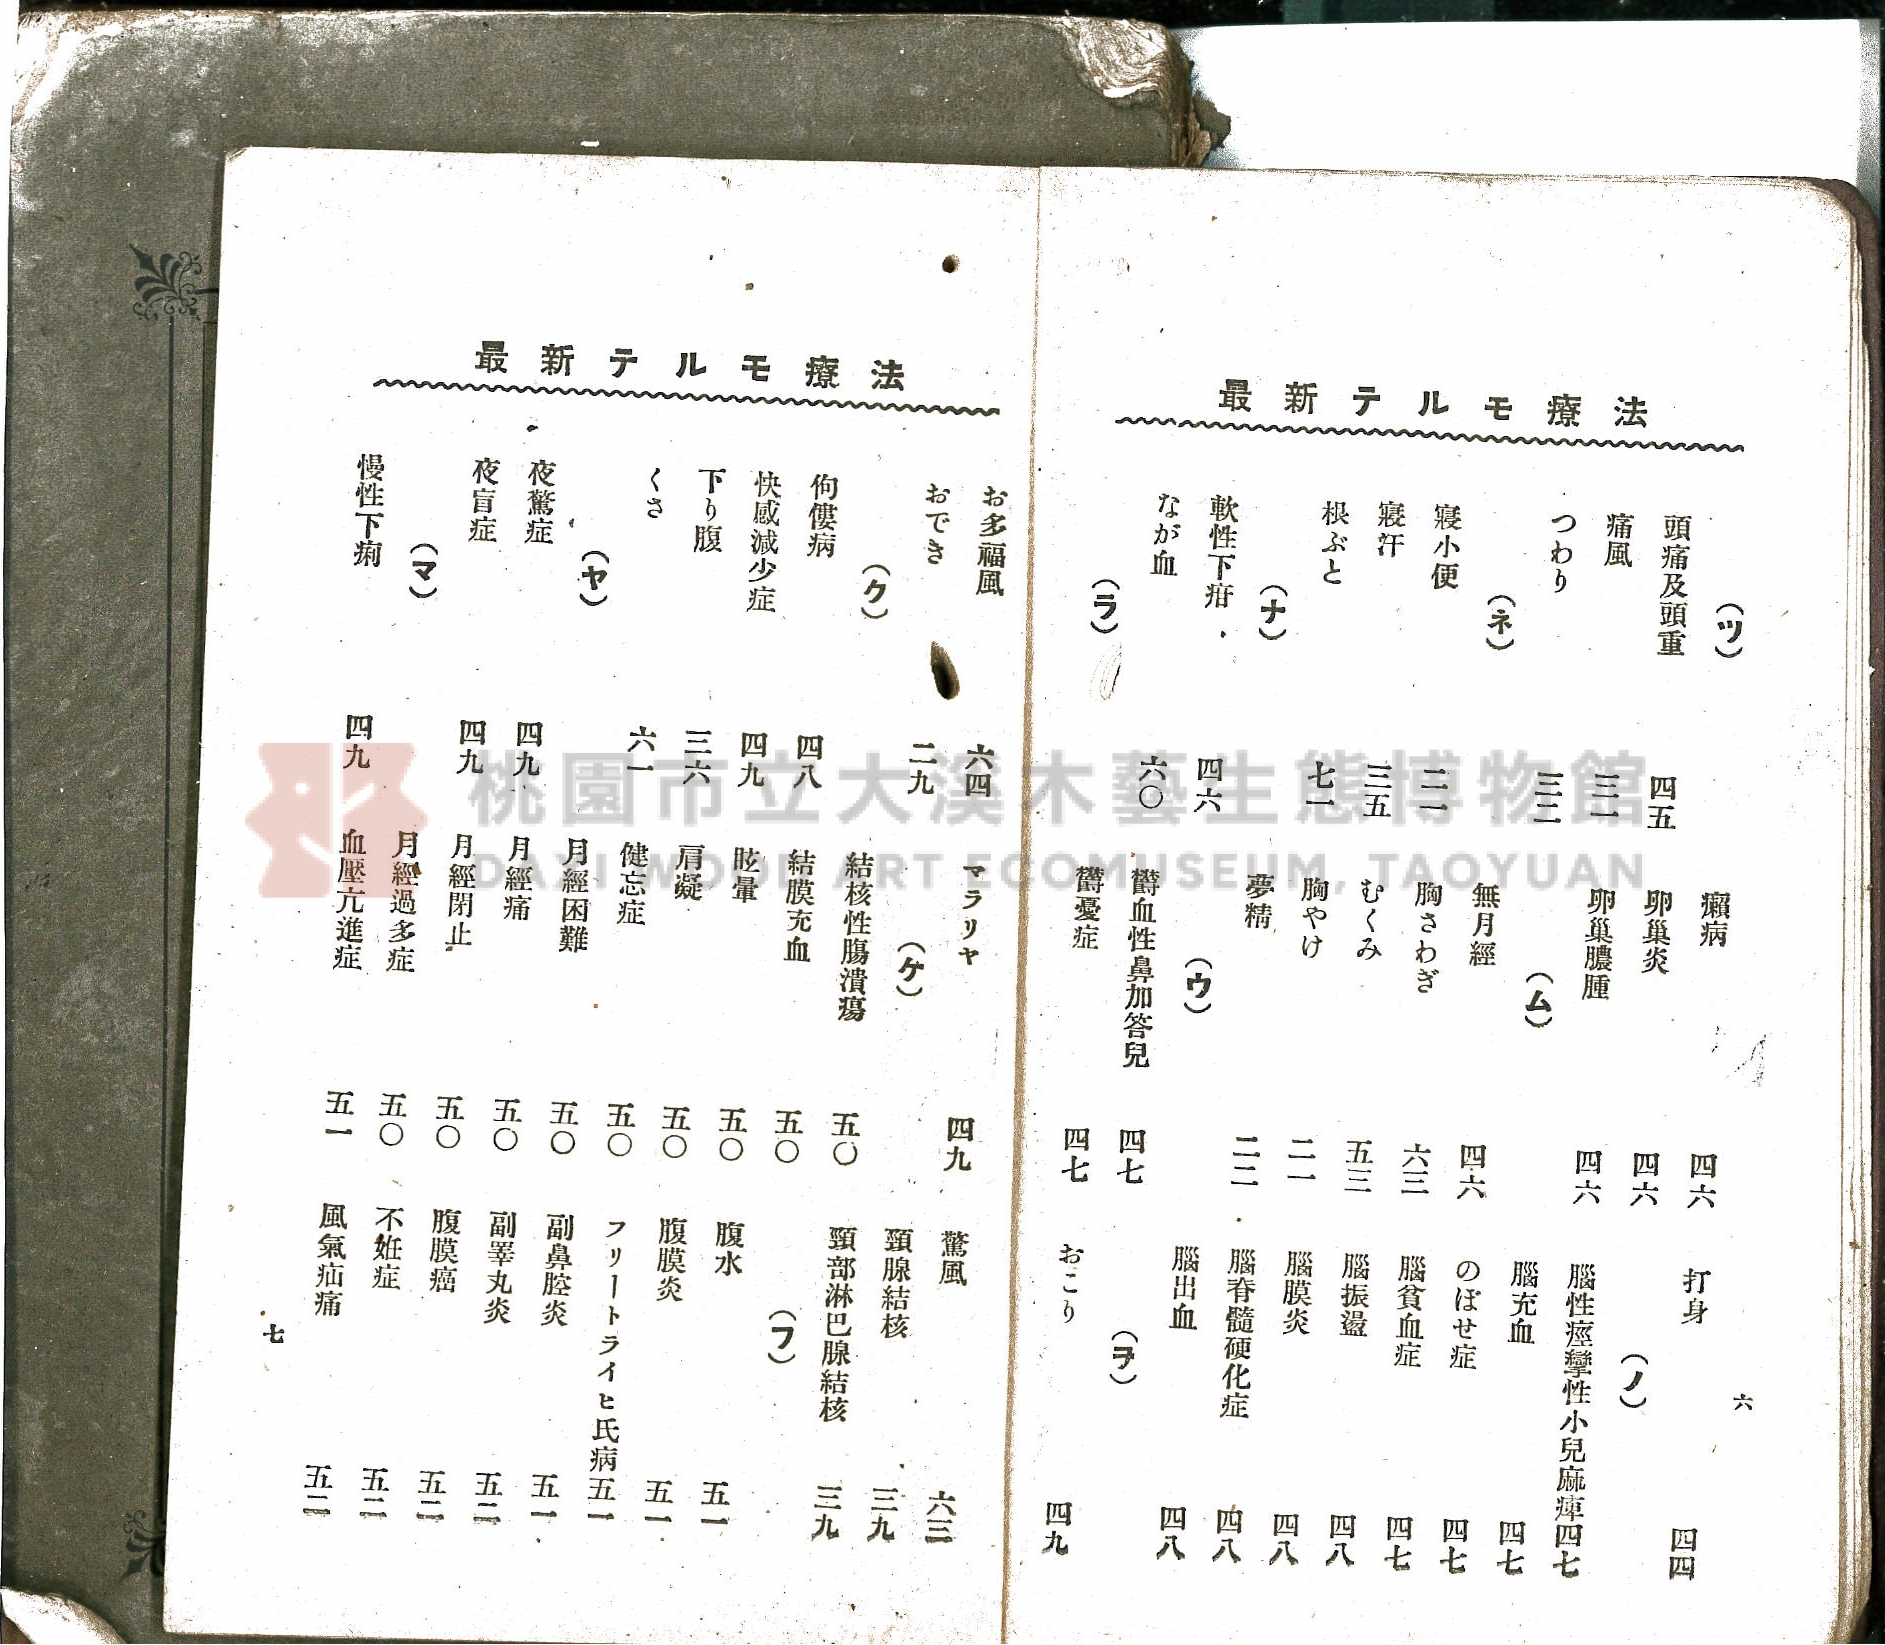 最新テルモ療法
六
(ツ)
頭痛及頭重 四五
痛風
つわり
(ネ)
寢小便
寢汗 三五
根ぶと 七一
(ナ)
軟性下疳 四六
なが血 六〇
(ラ)
癩病 四六
卵巢炎 四六
卵巢膿腫 四六
(ム)
無月經 四六
胸さわぎ 六三
むくみ 五三
胸やけ 二一
夢精 二二
(ウ)
欝血性鼻加答兒 四七
欝憂症 四七
打身 四四
(ノ)
腦性痙攣性小兒麻痺 四七
腦充血 四七
のぼせ症 四七
腦貧血症 四七
腦振盪 四八
腦膜炎 四八
腦脊髓硬化症 四八
腦出血 四八
(ヲ)
おこり 四九
最新テルモ療法
お多福風 六四
おでき 二九
(ク)
佝僂病 四八
快感減少症 四九
下り腹 三六
くさ 六一
(ヤ)
夜驚症 四九
夜盲症 四九
(マ)
慢性下痢 四九
マラリヤ 四九
(ケ)
結核性腸潰瘍 五〇
結膜充血 五〇
眩暈 五〇
肩凝 五〇
健忘症 五〇
月經困難 五〇
月經痛 五〇
月經閉止 五〇
月經過多症 五〇
血壓亢進症 五一
驚風 六三
頸腺結核 三九
頸部淋巴腺結核 三九
(フ)
腹水 五一
腹膜炎 五一
フリートライヒ氏病 五一
副鼻腔炎 五一
副睪丸炎 五二
腹膜癌 五二
不姙症 五二
風氣疝痛 五二
七
桃園市立大溪木藝生態博物館
DAXI WOOD ART ECOMUSEUM, TAOYUAN